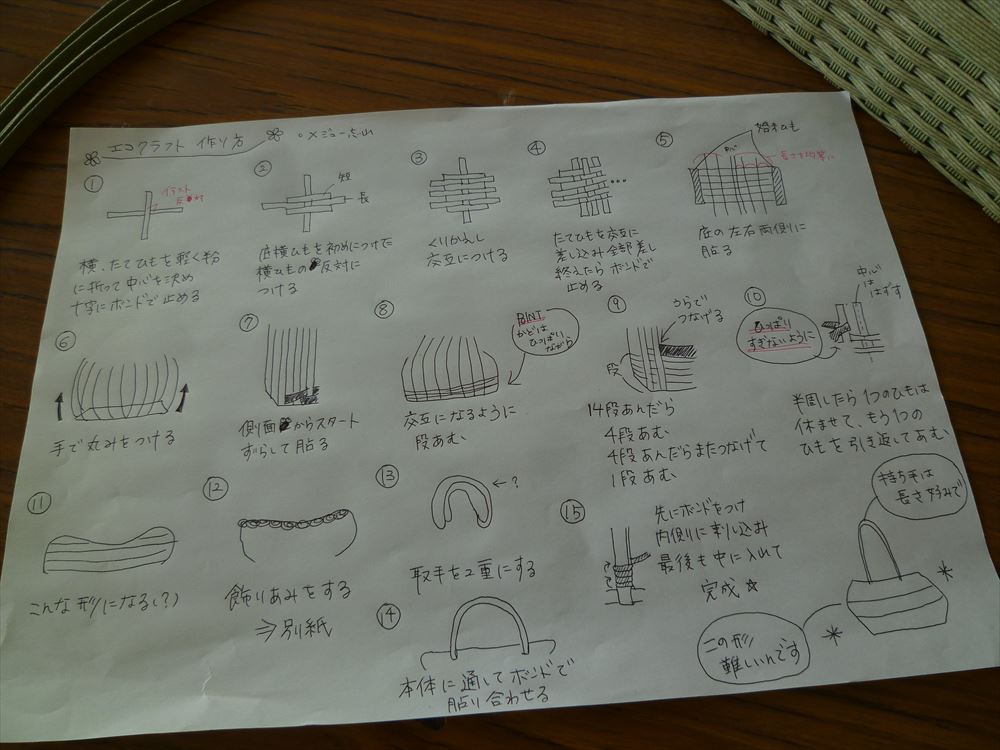 エコクラフト 作り方
○メジャー
①
イラスト
反対
横、たてひもを軽く
に折って中心を決め
十字にボンドで止める
②
短
長
底横ひもを初めにつけて
横ひもの反対に
つける
③
くりかえし
交互につける
④
たてひもを交互に
差し込み全部差し
終えたらボンドで
止める
⑤
始末ひも
中心
長さ均等に
底の左右両側に
貼る
⑥
手で丸みをつける
⑦
側面からスタート
ずらして貼る
⑧
POINT
かどは
ひっぱり
ながら
交互になるように
段あむ、
⑨
うらで
つなげる
段
14段あんだら
4段あむ、
4段あんだらまたつなげて
1段あむ、
⑩
ひっぱり
すぎないように
中心
は
はずす
半周したら1つのひもは
休ませて、もう1つの
ひもを引き返してあむ、
⑪
こんな形になる(?)
⑫
飾りあみをする
⇒別紙
⑬
←?
取手を2重にする
⑭
本体に通してボンドで
貼り合わせる
⑮
先にボンドをつけ
内側に刺し込み
最後も中に入れて
完成☆
持ち手は
長さ好みで
この形
難しいんです